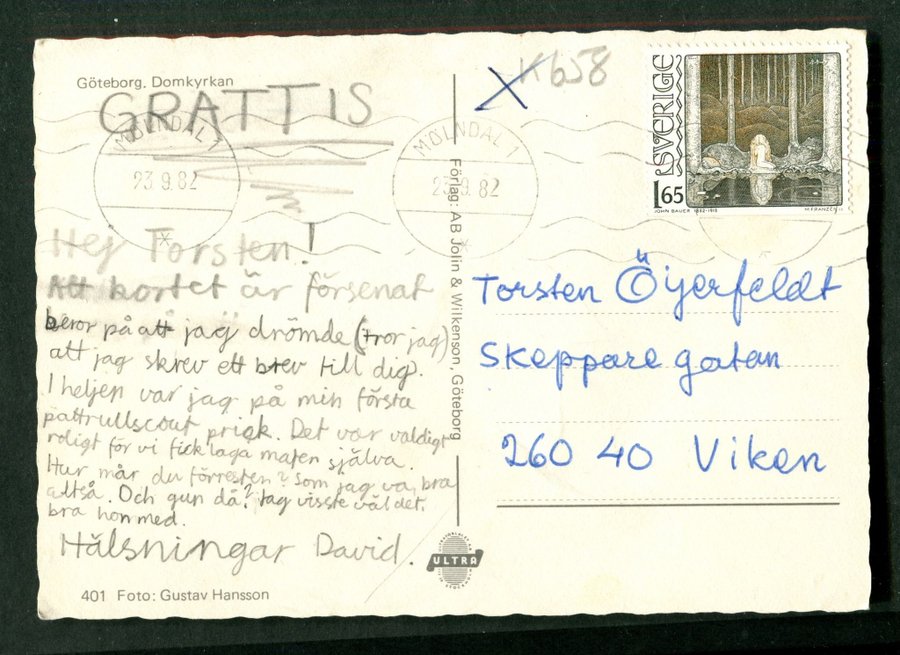 Göteborg. Domkyrkan
GRATTIS
MÖLNDAL 1
23.9.82
MÖLNDAL 1
23.9.82
Hej Torsten!
Att kortet är försenat
beror på att jag drömde (tror jag)
att jag skrev ett brev till dig.
I heljen var jag på min första
pattrullscout
Det var valdigt
roligt för vi fick laga maten själva.
Hur mår du förresten? Som jag va, bra
altså. Och gun då? Jag visste väl det.
bra hon med.
Hälsningar David.
401 Foto: Gustav Hansson
Förlag: AB Jolin & Wilkenson, Göteborg
ULTRA
X K658
SVERIGE
165
JOHN BAUER 1882-1918
M. FRANZÉN SC
Torsten Öijerfeldt
Skeppare gatan
260 40 Viken